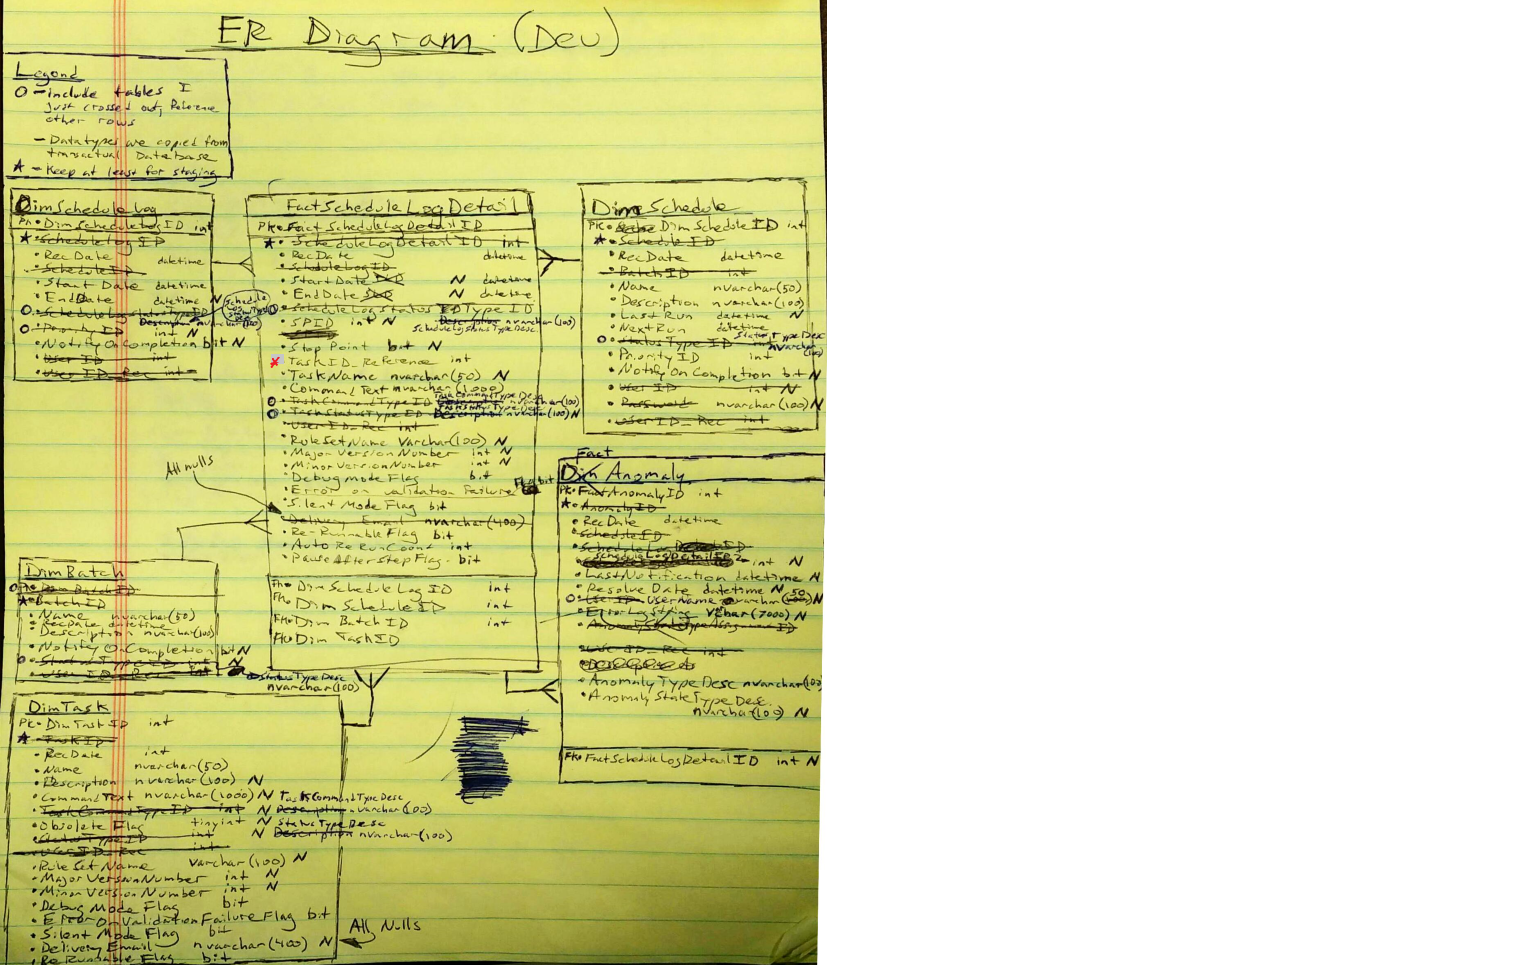 ER Diagram (Dev)
Legend
O - include tables I
just crossed out, Reference
other rows
- Datatypes are copied from
transactual Database
★ - Keep at least for staging
DimScheduleLog
PK • DimScheduleLogID int
★ • ScheduleLogID
• RecDate datetime
• ScheduleID
• Start Date datetime
• EndDate datetime N
O • ScheduleLogStatusTypeID
Description nvarchar(100)
O • Priority ID int N
• Notify On Completion bit N
• User ID int
• User ID_Rec int
Schedule
Log
FactScheduleLogDetail
PK • FactScheduleLogDetailID
★ • ScheduleLogDetailID int
• RecDate datetime
• ScheduleLogID
• StartDate N datetime
• EndDate N datetime
O • ScheduleLogStatus Type ID
• SPID int N Description nvarchar(100)
ScheduleLogStatusTypeDesc
• Stop Point bit N
x TaskID_Reference int
• TaskName nvarchar(50) N
• Command Text nvarchar(1000)
TaskCommandTypeDesc
O • TaskCommandTypeID nvarchar(100)
TaskStatusTypeDesc
O • TaskStatusTypeID Description nvarchar(100) N
• User ID_Rec int
• RuleSetName Varchar(100) N
• Major Version Number int N
• Minor VersionNumber int N
• Debug mode Flag bit
• Error on validation Failure Flag bit
• Silent Mode Flag bit
• Delivery Email nvarchar(400)
• Re-Runnable Flag bit
• Auto ReRunCount int
• PauseAfterStepFlag bit
FK • DimScheduleLogID int
FK • DimScheduleID int
FK • Dim Batch ID int
FK • Dim TaskID
All nulls
DimSchedule
PK • DimScheduleID int
★ • ScheduleID
• RecDate datetime
• BatchID int
• Name nvarchar(50)
• Description nvarchar(100)
• Last Run datetime N
• NextRun datetime
O • StatusTypeID int StatusTypeDesc nvarchar(100)
• Priority ID int N
• Notify On Completion bit N
• User ID int N
• Password nvarchar(100) N
• User ID_Rec int
Fact
Dim Anomaly
PK • FactAnomalyID int
★ • AnomalyID
• RecDate datetime
• ScheduleID
• ScheduleLogDetailID
ScheduleLogDetailID int N
• LastNotification datetime N
• Resolve Date datetime N
O • User ID UserName nvarchar(50) N
• ErrorLogString Vchar(7000) N
• AnomalyStateTypeAssignmentID
• User ID_Rec int
• AnomalyTypeDesc nvarchar(100)
• AnomalyStateTypeDesc
nvarchar(100) N
FK • FactScheduleLogDetailID int N
DimBatch
O PK • Dim BatchID
★ • BatchID
• Name nvarchar(50)
• RecDate datetime
• Description nvarchar(100)
• Notify On Completion bit N
O • StatusTypeID int N
• User ID_Rec int
StatusTypeDesc
nvarchar(100)
DimTask
PK • DimTaskID int
★ • TaskID
• RecDate int
• Name nvarchar(50)
• Description nvarchar(100) N
• CommandText nvarchar(1000) N TaskCommandTypeDesc
• TaskCommandTypeID int N Description nvarchar(100)
• Obsolete Flag tinyint N StatusTypeDesc
• StatusTypeID int N Description nvarchar(100)
• User ID_Rec int
• Rule Set Name Varchar(100) N
• Major VersionNumber int N
• Minor Version Number int N
• Debug Mode Flag bit
• Error On Validation Failure Flag bit
• Silent Mode Flag bit
• Delivery Email nvarchar(400) N
• ReRunnable Flag bit
All Nulls